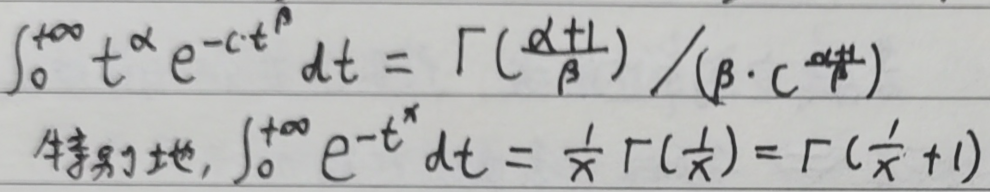 ∫₀^{+∞} t^α e^{-c·t^β} dt = Γ(\frac{α+1}{β}) / (β · c^{\frac{α+1}{β}})
特别地, ∫₀^{+∞} e^{-t^x} dt = \frac{1}{x} Γ(\frac{1}{x}) = Γ(\frac{1}{x} + 1)